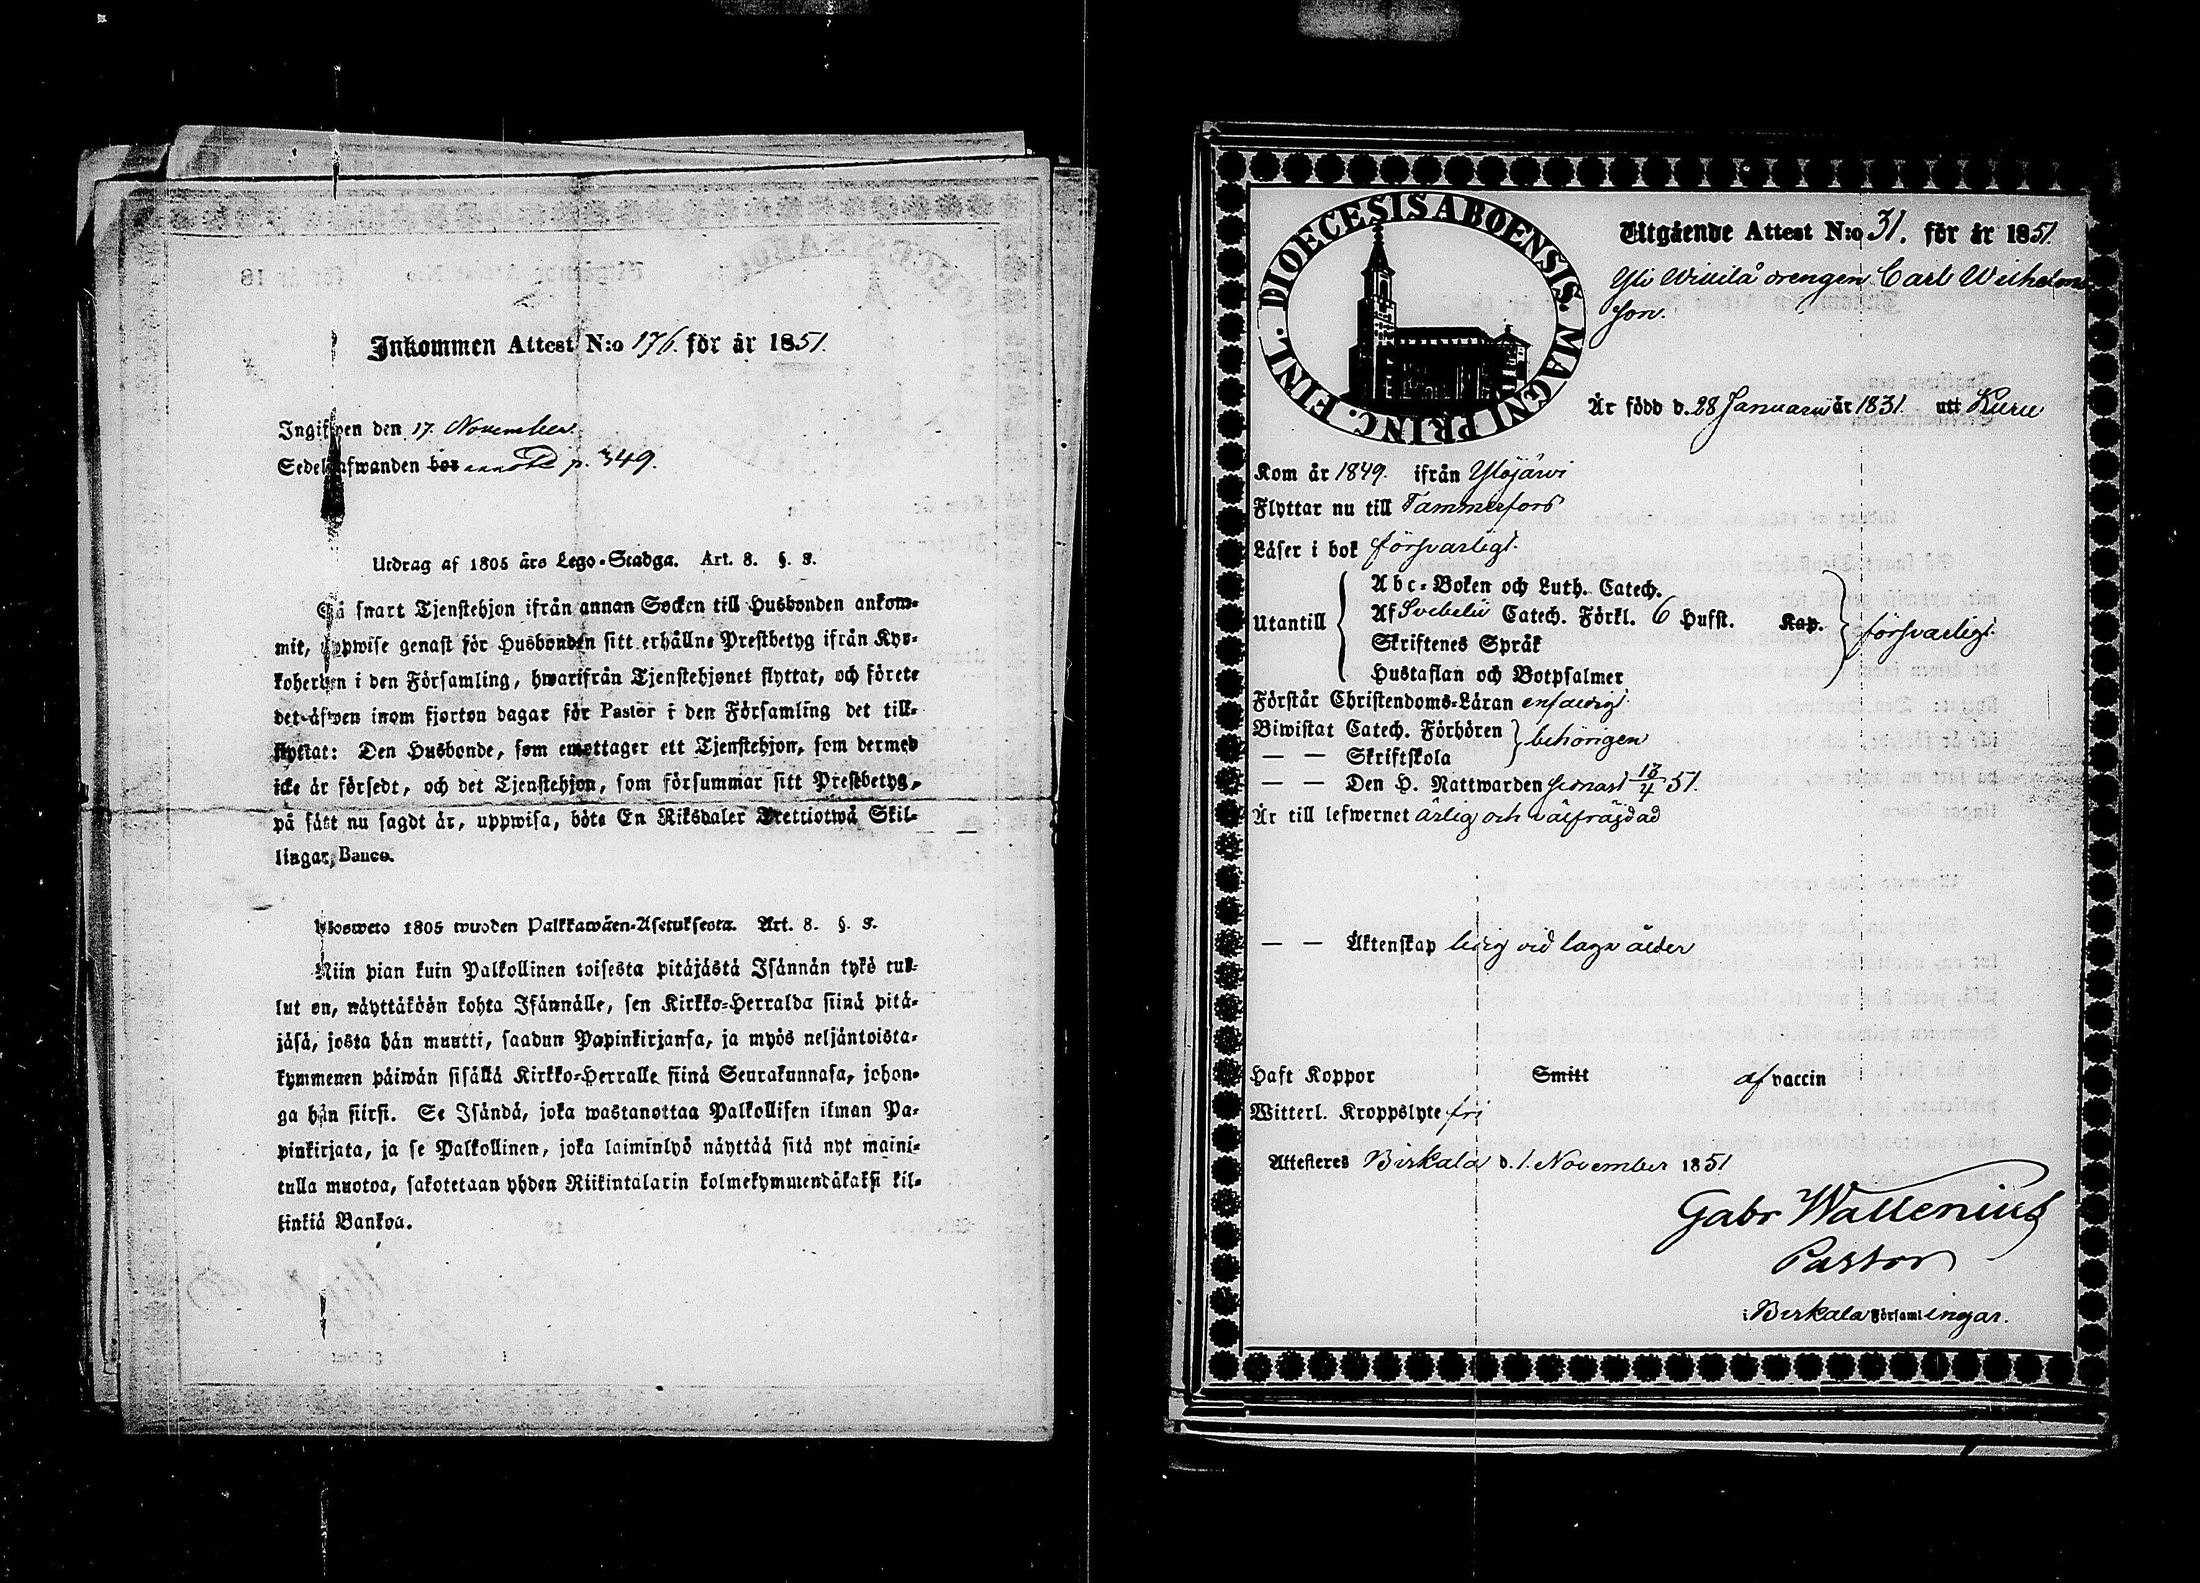 Inkommen Attest N:o 176. för år 1851.
Ingifwen den 17. November.
Sedelafwanden bor p. 349.
Utdrag af 1805 års Lego-Stadga. Art. 8. §. 8.
Så snart Tjenstehjon ifrån annan Socken till Husbonden ankom-
mit, uppwise genast för Husbonden sitt erhållne Prestbetyg ifrån Kyr-
koherden i den Församling, hwarifrån Tjenstehjonet flyttat, och förete
det äfwen inom fjorton dagar för Pastor i den Församling det till-
flyttat: Den Husbonde, som emottager ett Tjenstehjon, som dermed
icke är försedt, och det Tjenstehjon, som försummar sitt Prestbetyg,
på sätt nu sagdt är, uppwisa, böte En Riksdaler Trettiotwå Skil-
lingar, Banco.
Ulosweto 1805 wuoden Palkkawäen-Asetuksesta. Art. 8. §. 8.
Niin pian kuin Palkollinen toisesta pitäjästä Isännän tykö tul-
lut on, näyttäköön kohta Isännälle, sen Kirkko-Herralda siinä pitä-
jäsä, josta hän muutti, saadun Papinkirjansa, ja myös neljäntoista-
kymmenen päiwän sisällä Kirkko-Herralle siinä Seurakunnasa, johon-
ga hän siirsi. Se Isändä, joka wastanottaa Palkollisen ilman Pa-
pinkirjata, ja se Palkollinen, joka laiminlyö näyttää sitä nyt maini-
tulla muotoa, sakotetaan yhden Riikintalarin kolmekymmendäkaksi kil-
linkiä Bankoa.
DIOECESIS ABOENSIS. MAGNI PRINC. FINL.
Utgående Attest N:o 31. för år 1851.
Yli Willilä drengen Carl Wilhelms
son.
Är född d. 28 Januarii år 1831. utí Kuru
Kom år 1849. ifrån Ylöjärvi
Flyttar nu till Tammerfors
Läser i bok försvarligt.
Utantill Abc-Boken och Luth. Catech.
Af Svebelii Catech. Förkl. 6 Hufst. Kap. försvarligt.
Skriftenes Språk
Hustaflan och Botpsalmer
Förstår Christendoms-Läran enfaldigt.
Biwistat Catech. Förhören behörigen
— — Skriftskola
— — Den H. Nattwarden senast 13/4 51.
Är till lefwernet ärlig och välfrägdad
— — Äktenskap ledig vid laga ålder
Haft Koppor Smitt af vaccin
Witterl. Kroppslyte fri
Attesteres Birkala d. 1. November 1851
Gabr Wallenius
Pastor
i Birkala Församlingar.